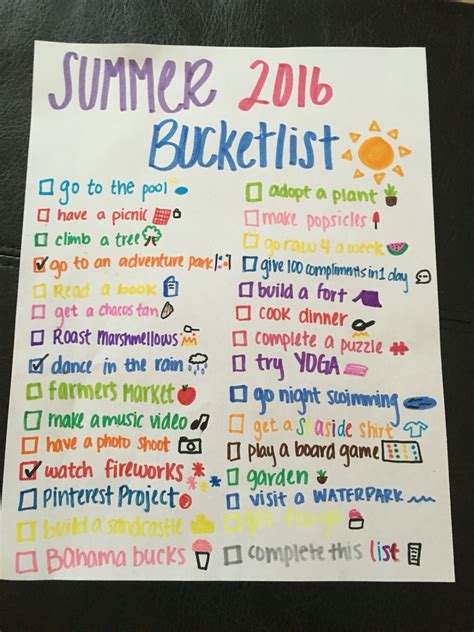 SUMMER 2016
Bucketlist
go to the pool
have a picnic
climb a tree
go to an adventure park
Read a book
get a chacos tan
Roast Marshmellows
dance in the rain
farmers Market
make a music video
have a photo shoot
watch fireworks
Pinterest Project
build a sandcastle
Bahama bucks
adopt a plant
make popsicles
go raw 4 a week
give 100 compliments in 1 day
build a fort
cook dinner
complete a puzzle
try YOGA
go night swimming
get a seaside shirt
play a board game
garden
visit a WATERPARK
get fro-yo
complete this list